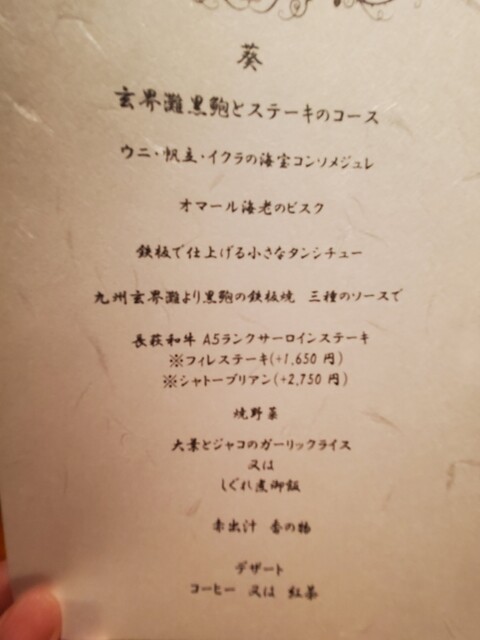 葵
玄界灘黒鮑とステーキのコース
ウニ・帆立・イクラの海宝コンソメジュレ
オマール海老のビスク
鉄板で仕上げる小さなタンシチュー
九州玄界灘より黒鮑の鉄板焼 三種のソースで
長萩和牛 A5ランクサーロインステーキ
※フィレステーキ(+1,650 円)
※シャトーブリアン(+2,750 円)
焼野菜
大葉とジャコのガーリックライス
又は
しぐれ煮御飯
赤出汁 香の物
デザート
コーヒー 又は 紅茶